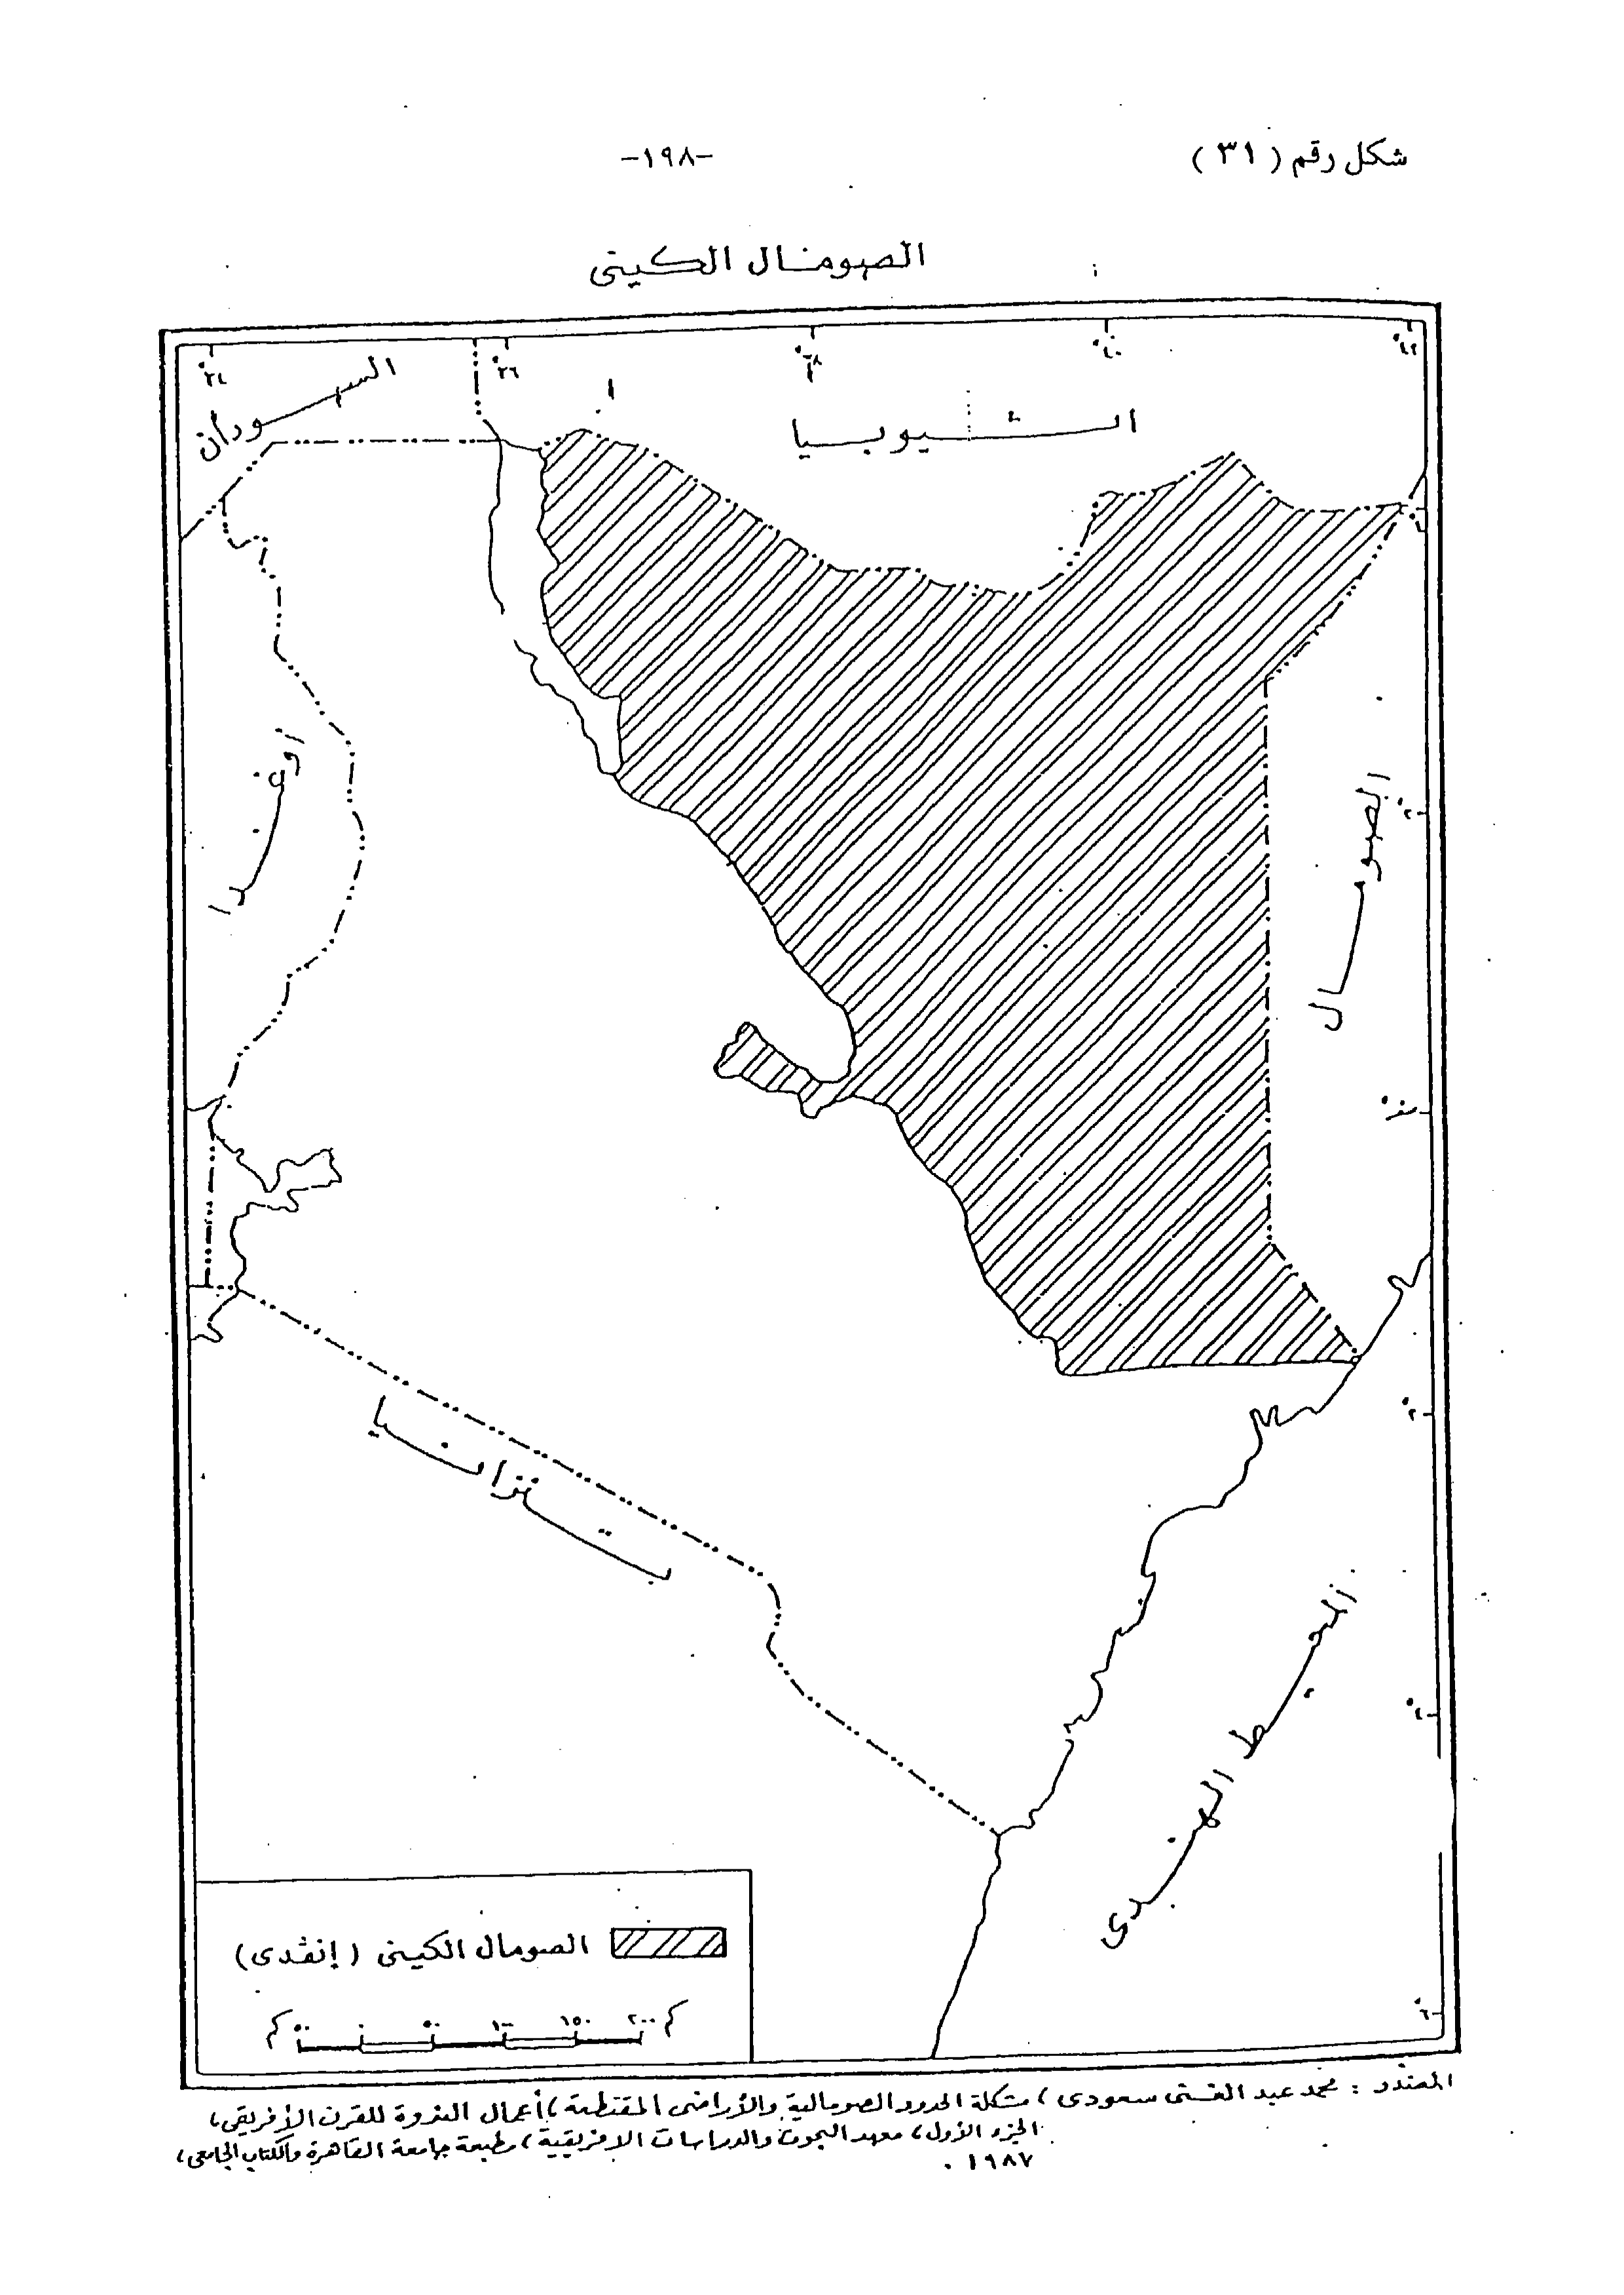 شكل رقم ( ٣١ )
-١٩٨-
الصومال الكينى
٣٤°
٣٦°
٣٨°
٤٠°
٤٢°
السودان
اثيوبيا
أوغندا
الصومال
٢°
صفر°
٢°
تنزانيا
المحيط الهندى
٤°
٦°
الصومال الكينى ( إنفدى )
كم ٥٠ ٠ ٥٠ ١٠٠ ١٥٠ ٢٠٠ كم
المصدر : محمد عبد الغنى سعودى ، مشكلة الحدود الصومالية والأراضى المقتطعة ، أعمال الندوة للقرن الأفريقى ،
الجزء الأول ، معهد البحوث والدراسات الافريقية ، مطبعة جامعة القاهرة والكتاب الجامعى ،
١٩٨٧ .